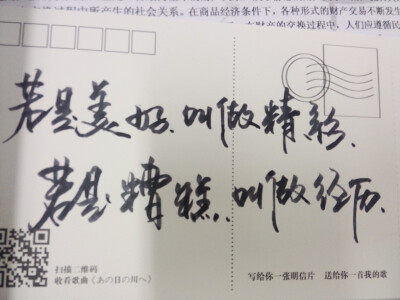 所产生的社会关系。在商品经济条件下，各种形式的财产交易不断发生
财产的交换过程中，人们应遵循民
若是美好、叫做精彩、
若是糟糕、叫做经历.
扫描二维码
收看歌曲《あの日の川へ》
写给你一张明信片 送给你一首我的歌